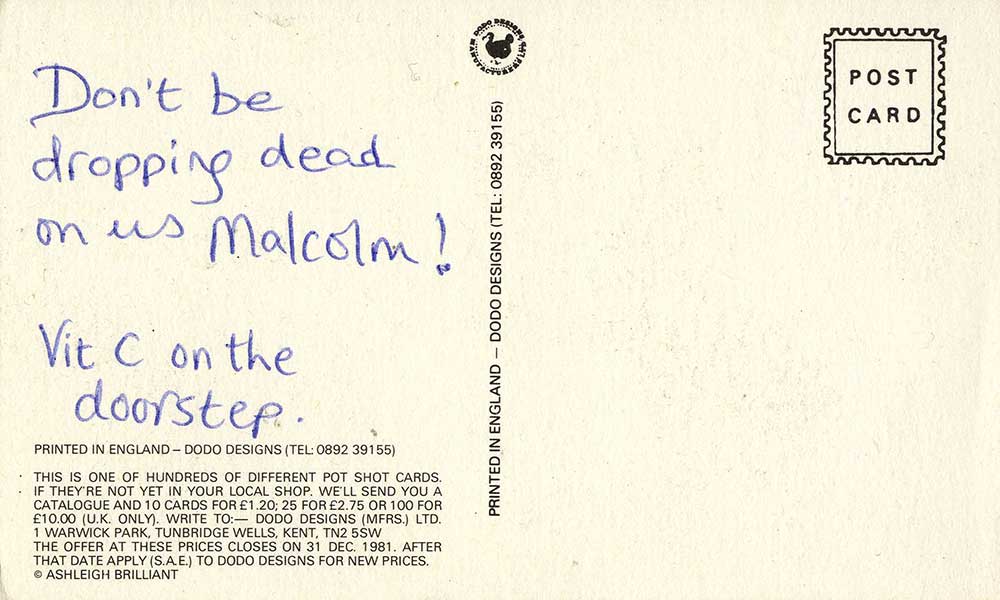 Don't be
dropping dead
on us Malcolm!
Vit C on the
doorstep.
PRINTED IN ENGLAND – DODO DESIGNS (TEL: 0892 39155)
THIS IS ONE OF HUNDREDS OF DIFFERENT POT SHOT CARDS.
IF THEY'RE NOT YET IN YOUR LOCAL SHOP. WE'LL SEND YOU A
CATALOGUE AND 10 CARDS FOR £1.20; 25 FOR £2.75 OR 100 FOR
£10.00 (U.K. ONLY). WRITE TO:— DODO DESIGNS (MFRS.) LTD.
1 WARWICK PARK, TUNBRIDGE WELLS, KENT, TN2 5SW
THE OFFER AT THESE PRICES CLOSES ON 31 DEC. 1981. AFTER
THAT DATE APPLY (S.A.E.) TO DODO DESIGNS FOR NEW PRICES.
© ASHLEIGH BRILLIANT
DODO DESIGNS
MANUFACTURERS LTD
PRINTED IN ENGLAND – DODO DESIGNS (TEL: 0892 39155)
POST
CARD